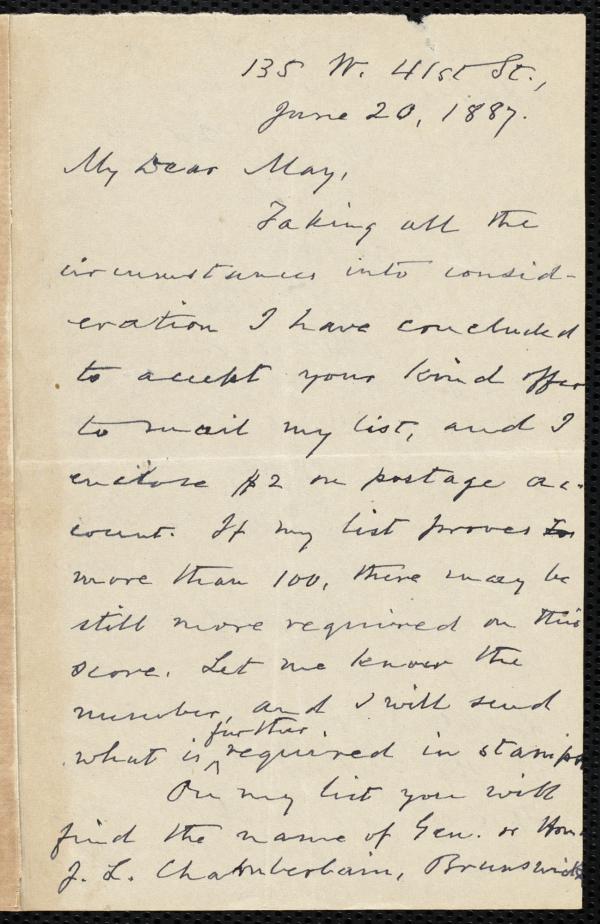 135 W. 41st St.,
June 20, 1887.
My Dear May,
Taking all the
circumstances into consid-
eration I have concluded
to accept your kind offer
to mail my list, and I
enclose $2 on postage ac-
count. If my list proves
more than 100, there may be
still more required on this
score. Let me know the
number, and I will send
what is further required in stamps
On my list you will
find the name of Gen. or Hon.
J. L. Chamberlain, Brunswick